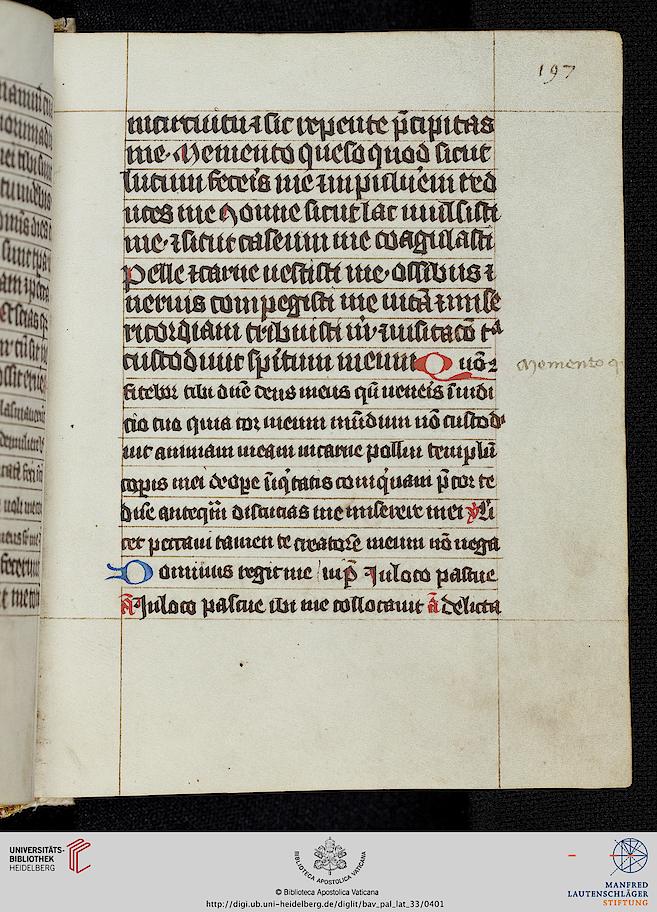 197
incircuitu ⁊ sic repente p̄cipitas
me. Memento queso quod sicut
lutum feceris me ⁊ in pulu'em red
uces me Nonne sicut lac mulsisti
me. ⁊ sicut caseum me coagulasti
Pelle ⁊ carne uestisti me. ossibus ⁊
neruis compegisti me uitā ⁊ mise
ricordiam tribuisti m̄ ⁊ uisitacō tᵃ
custodiuit spiritum meum Q
fitebor tibi dn̄e deus meus
cio tuo quia cor meum mūdum nō custod
uit animam meam incarne pollui templū
copis mei de ope īiq̄tatis conq̄uam p̄cor te
dn̄e anteq̄m discutias me miserere mei ℣ Li
cet peccaui tamen te creatore meum nō nega
Dominus regit me ip̄ Inloco pascue
A Inloco pascue ibi me collocauit a delicta
Memento q
UNIVERSITÄTS-
BIBLIOTHEK
HEIDELBERG
BIBLIOTECA APOSTOLICA VATICANA
© Biblioteca Apostolica Vaticana
http://digi.ub.uni-heidelberg.de/diglit/bav_pal_lat_33/0401
MANFRED
LAUTENSCHLÄGER
STIFTUNG